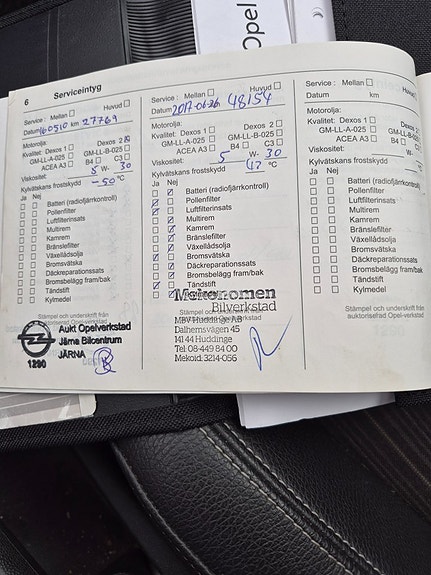 Opel
6 Serviceintyg
Service : Mellan ☐ Huvud ☐
Datum 160510 km 27769
Motorolja:
Kvalitet: Dexos 1 ☐ Dexos 2 ☒
GM-LL-A-025 ☐ GM-LL-B-025 ☐
ACEA A3 ☐ B4 ☐ C3 ☐
Viskositet: 5 W- 30
Kylvätskans frostskydd -50 °C
Ja Nej
☐ ☐ Batteri (radiofjärrkontroll)
☐ ☐ Pollenfilter
☐ ☐ Luftfilterinsats
☐ ☐ Multirem
☐ ☐ Kamrem
☐ ☐ Bränslefilter
☐ ☐ Växellådsolja
☐ ☐ Bromsvätska
☐ ☐ Däckreparationssats
☐ ☐ Bromsbelägg fram/bak
☐ ☐ Tändstift
☐ ☐ Kylmedel
Stämpel och underskrift från
auktoriserad Opel-verkstad
Aukt Opelverkstad
Järna Bilcentrum
JÄRNA
1290
Service : Mellan ☐ Huvud ☐
Datum 2017-06-26 48154
Motorolja:
Kvalitet: Dexos 1 ☐ Dexos 2 ☐
GM-LL-A-025 ☐ GM-LL-B-025 ☐
ACEA A3 ☐ B4 ☐ C3 ☐
Viskositet: 5 W- 30
Kylvätskans frostskydd °C
Ja Nej
Batteri (radiofjärrkontroll)
Pollenfilter
Luftfilterinsats
Multirem
Kamrem
Bränslefilter
Växellådsolja
Bromsvätska
Däckreparationssats
Bromsbelägg fram/bak
Tändstift
Mekonomen
Bilverkstad
MBV Huddinge AB
Dalhemsvägen 45
141 44 Huddinge
Tel: 08 449 84 00
Mekoid: 3214-056
Service : Mellan ☐
Datum km
Motorolja:
Kvalitet: Dexos 1 ☐
GM-LL-A-025 ☐
ACEA A3 ☐
Viskositet:
Kylvätskans frostskydd
Ja Nej
☐ ☐ Batteri (radiofjärrkontroll)
☐ ☐ Pollenfilter
☐ ☐ Luftfilterinsats
☐ ☐ Multirem
☐ ☐ Kamrem
☐ ☐ Bränslefilter
☐ ☐ Växellådsolja
☐ ☐ Bromsvätska
☐ ☐ Däckreparationssats
☐ ☐ Bromsbelägg fram/bak
☐ ☐ Tändstift
☐ ☐ Kylmedel
Stämpel och underskrift från
auktoriserad Opel-verkstad